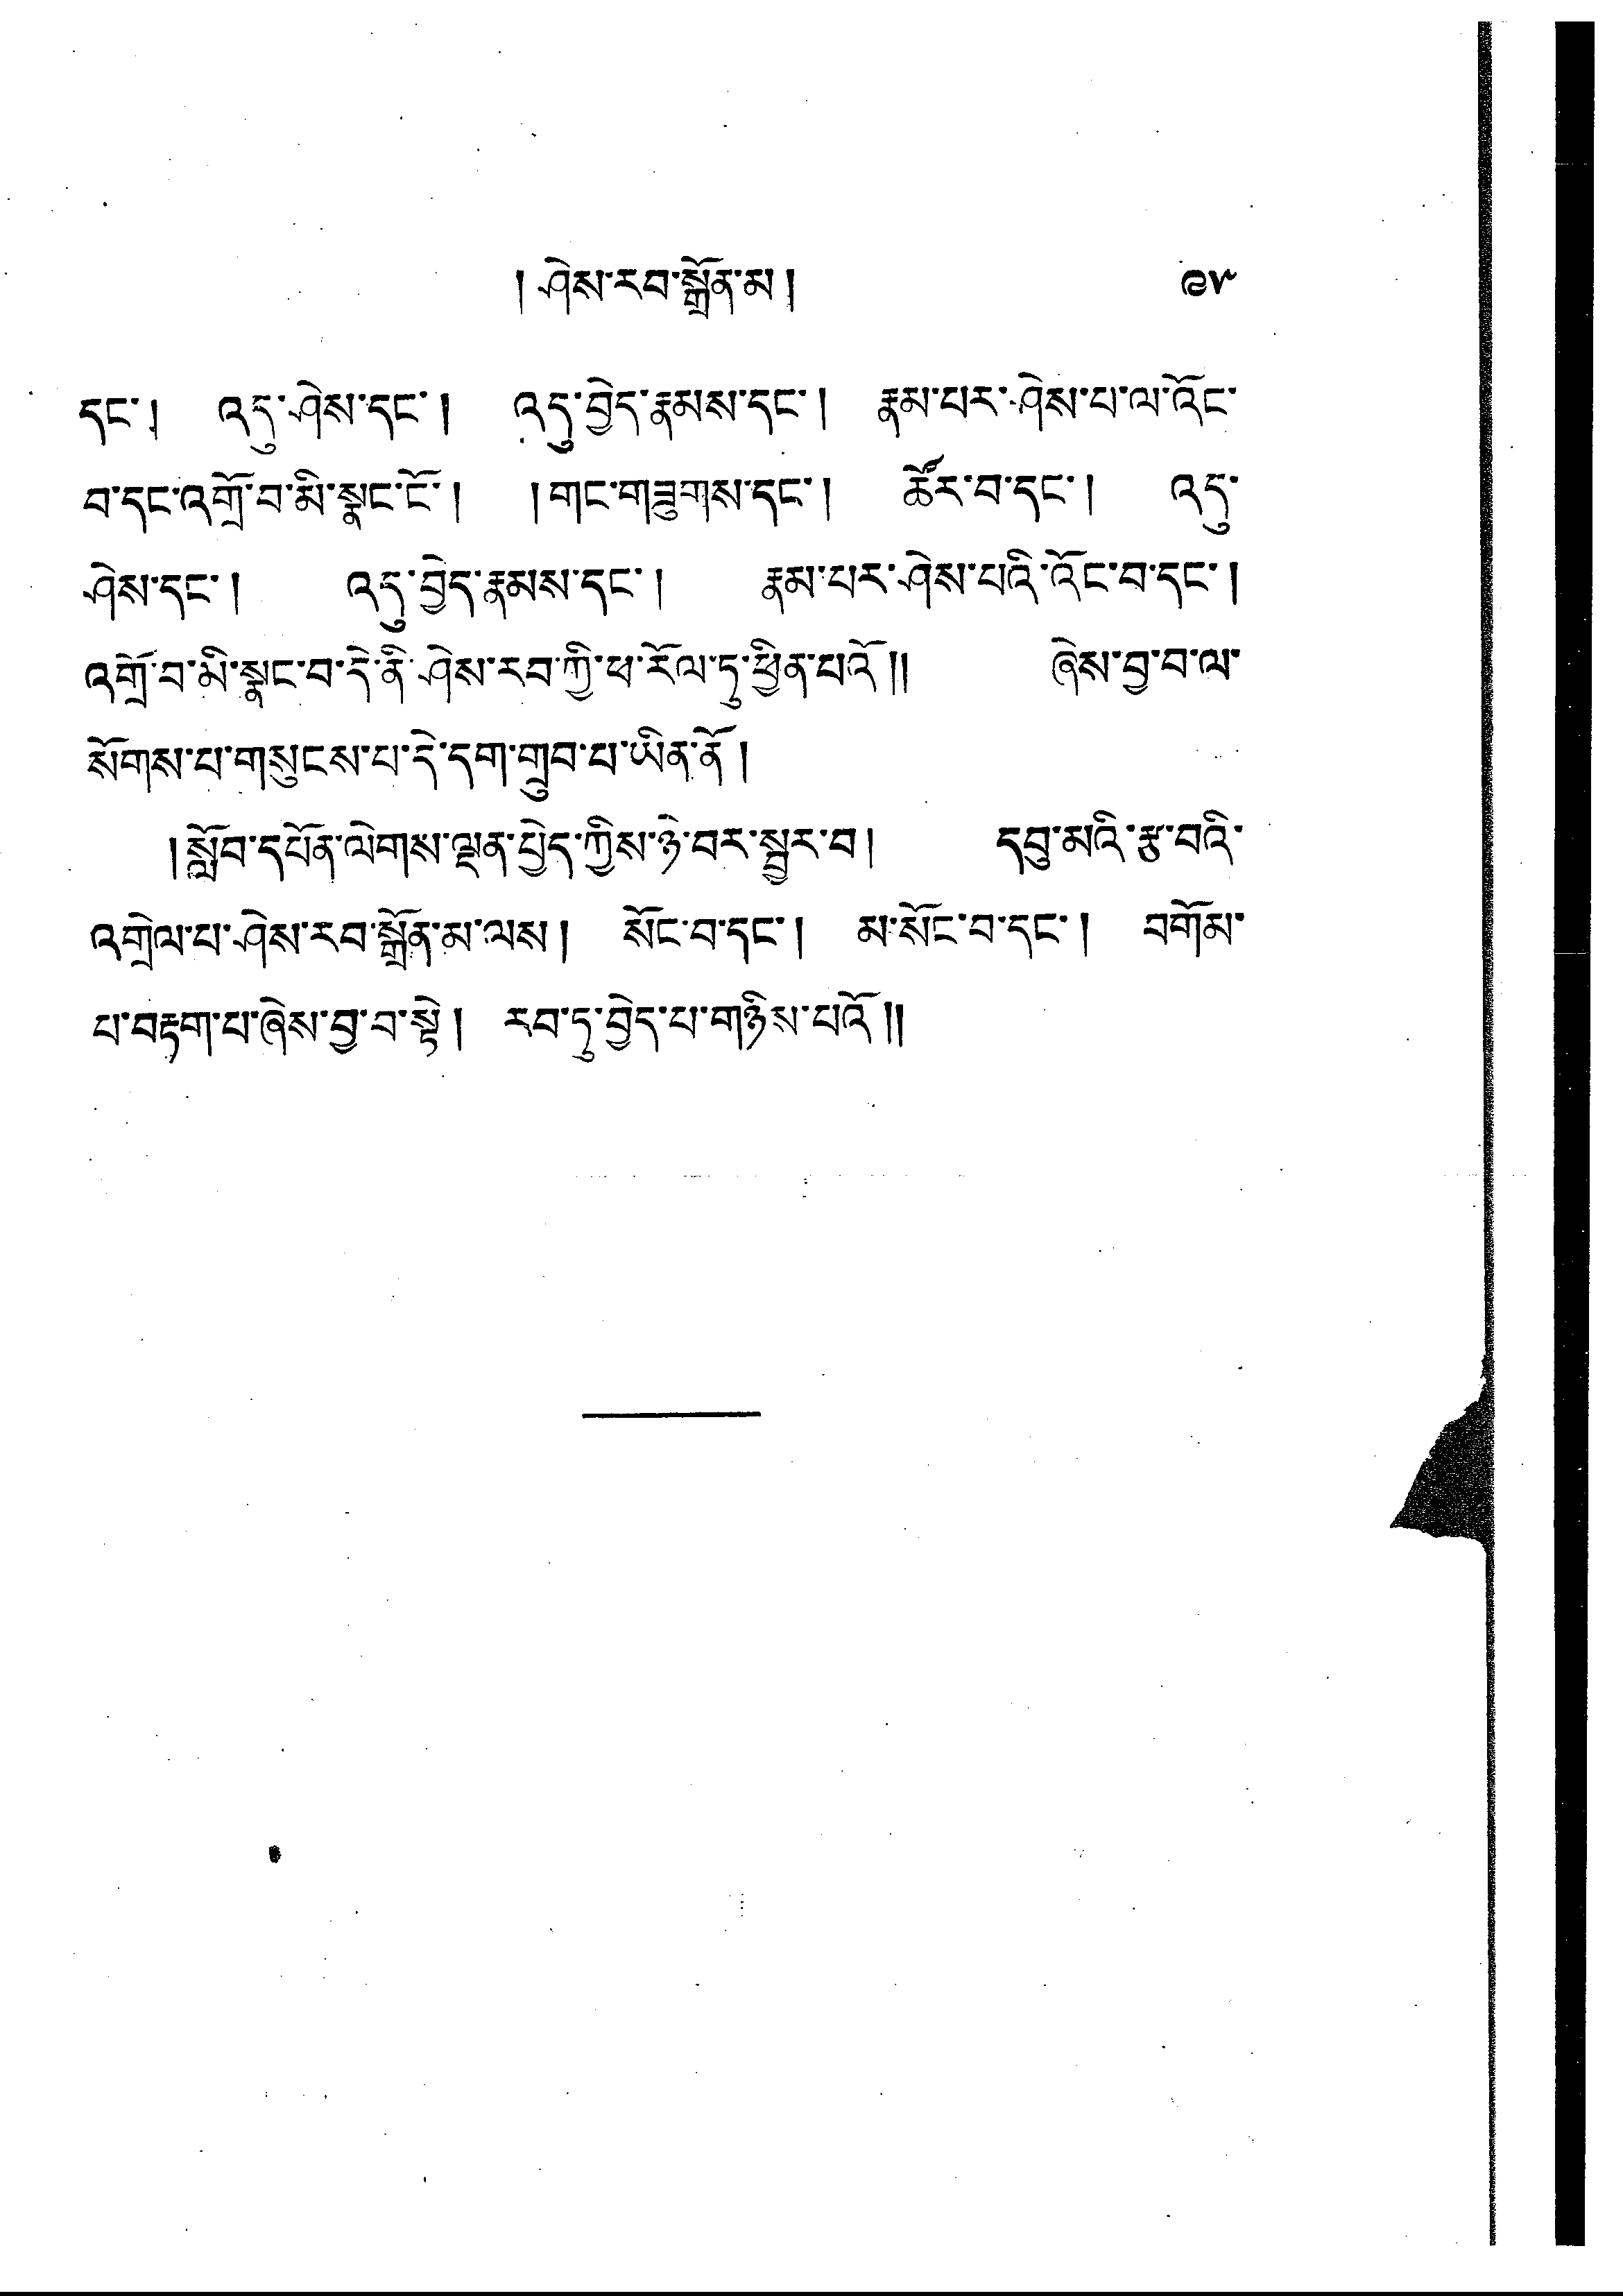 ། ཤེས་རབ་སྒྲོན་མ །
དང་། འདུ་ཤེས་དང་། འདུ་བྱེད་རྣམས་དང་། རྣམ་པར་ཤེས་པ་ལ་འོང་
བ་དང་འགྲོ་བ་མི་སྣང་ངོ་། །གང་གཟུགས་དང་། ཚོར་བ་དང་། འདུ་
ཤེས་དང་། འདུ་བྱེད་རྣམས་དང་། རྣམ་པར་ཤེས་པའི་འོང་བ་དང་།
འགྲོ་བ་མི་སྣང་བ་དེ་ནི་ཤེས་རབ་ཀྱི་ཕ་རོལ་ཏུ་ཕྱིན་པའོ།། ཞེས་བྱ་བ་ལ་
སོགས་པ་གསུངས་པ་དེ་དག་གྲུབ་པ་ཡིན་ནོ།
།སློབ་དཔོན་ལེགས་ལྡན་བྱེད་ཀྱིས་ཉེ་བར་སྦྱར་བ། དབུ་མའི་རྩ་བའི་
འགྲེལ་པ་ཤེས་རབ་སྒྲོན་མ་ལས། སོང་བ་དང་། མ་སོང་བ་དང་། བགོམ་
པ་བརྟག་པ་ཞེས་བྱ་བ་སྟེ། རབ་ཏུ་བྱེད་པ་གཉིས་པའོ།།